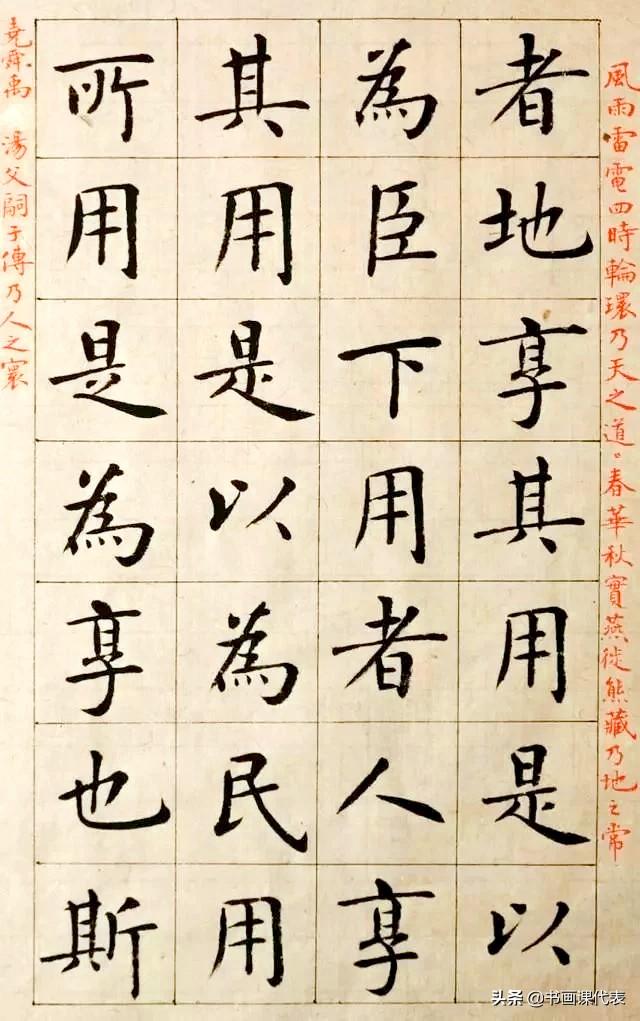 風雨雷電四時輪環乃天之道。春華秋實燕徙熊藏乃地之常
者地享其用是以
為臣下用者人享
其用是以為民用
所用是為享也斯
堯舜禹湯父嗣子傳乃人之寰
头条 @书画课代表